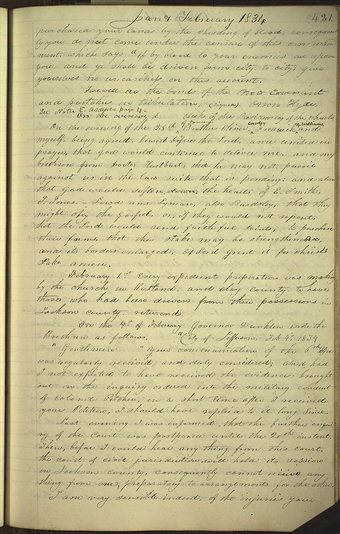 Jan & February 1834 431
purchase your lands by the shedding of blood, consequently
you do not come under the censure of this command
ment which says "if by blood lo your enemies are upon
you and ye shall be driven from city to city" give
yourselves no uneasiness on this account.
Farewell in the bonds of the New Covenant
and partakers in tribulation. signed Orson Hyde.
See Note E. addenda page 4.
On the evening of the 28th Brothers Oliver, Frederick, and
myself, being agreed, bowed before the Lord, and united in
prayer, that God would continue to deliver me, and my
brethren from doctor Hurlbert, that he may not prevail
against us in the law suit that is pending; and also
that God would soften down the hearts of E. Smith,
J. Jones, Lowd and Lyman, also Bardsley, that they
might obey the Gospel; or if they would not repent,
that the Lord would send faithful saints, to purchase
their farms, that this stake may be strengthened,
and its borders enlarged, O Lord grant it for Christ's
sake. amen.
February 1st. every expedient preparation was making
by the church in Kirtland, and Clay county, to have
those, who had been driven from their possessions in
Jackson county, returned
On the 4th of February, Governor Dunklin wrote the
Brethren as follows, "City of Jefferson Feb 4th 1834
"Gentlemen: "Your communication of the 6th Dec
was regularly received, and duly considered; and had
I not expected to have received the evidence brought
out on the inquiry ordered into the military conduct
of Colonel Pitcher, in a short time after I received
your Petition, I should have replied to it long since.
Last evening I was informed, that the further enqui
ry of the Court was postponed until the 20th instant.
Then, before I could hear any thing from this court,
the court of civil jurisdiction will hold its session
in Jackson county, consequently cannot receive any
thing from one, preparatory to arrangements for the other.
I am very sensible indeed, of the injuries your